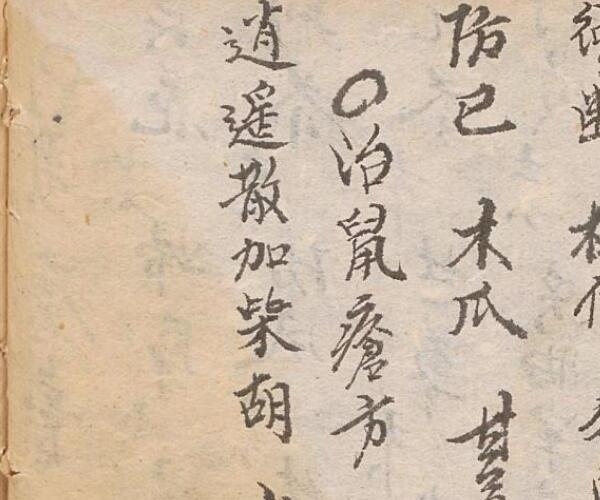 防已 木瓜
○治鼠瘡方
逍遥散加柴胡